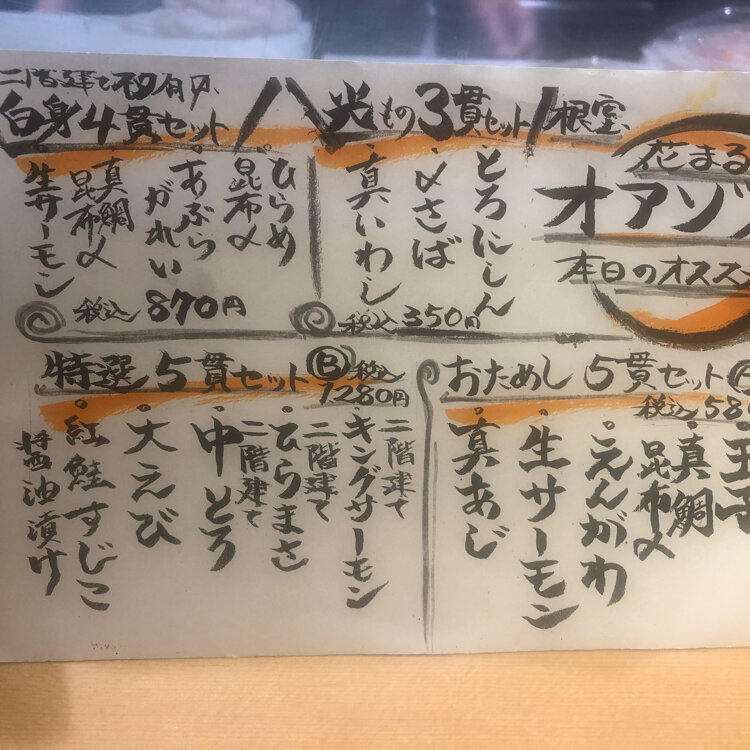 根室
花まる
オアゾ
本日のオススメ
光もの3貫セット
・とろにしん
・〆さば
・真いわし
税込350円
白身4貫セット
・ひらめ
昆布〆
・あぶら
がれい
・真鯛
昆布〆
・生サーモン
税込870円
おためし5貫セット
税込58
・玉子
・真鯛
昆布〆
・えんがわ
・生サーモン
・真あじ
特選5貫セットⒷ税込
1280円
二階建て
・キングサーモン
二階建て
・ひらまさ
二階建て
・中とろ
・大えび
・紅鮭すじこ
醤油漬け